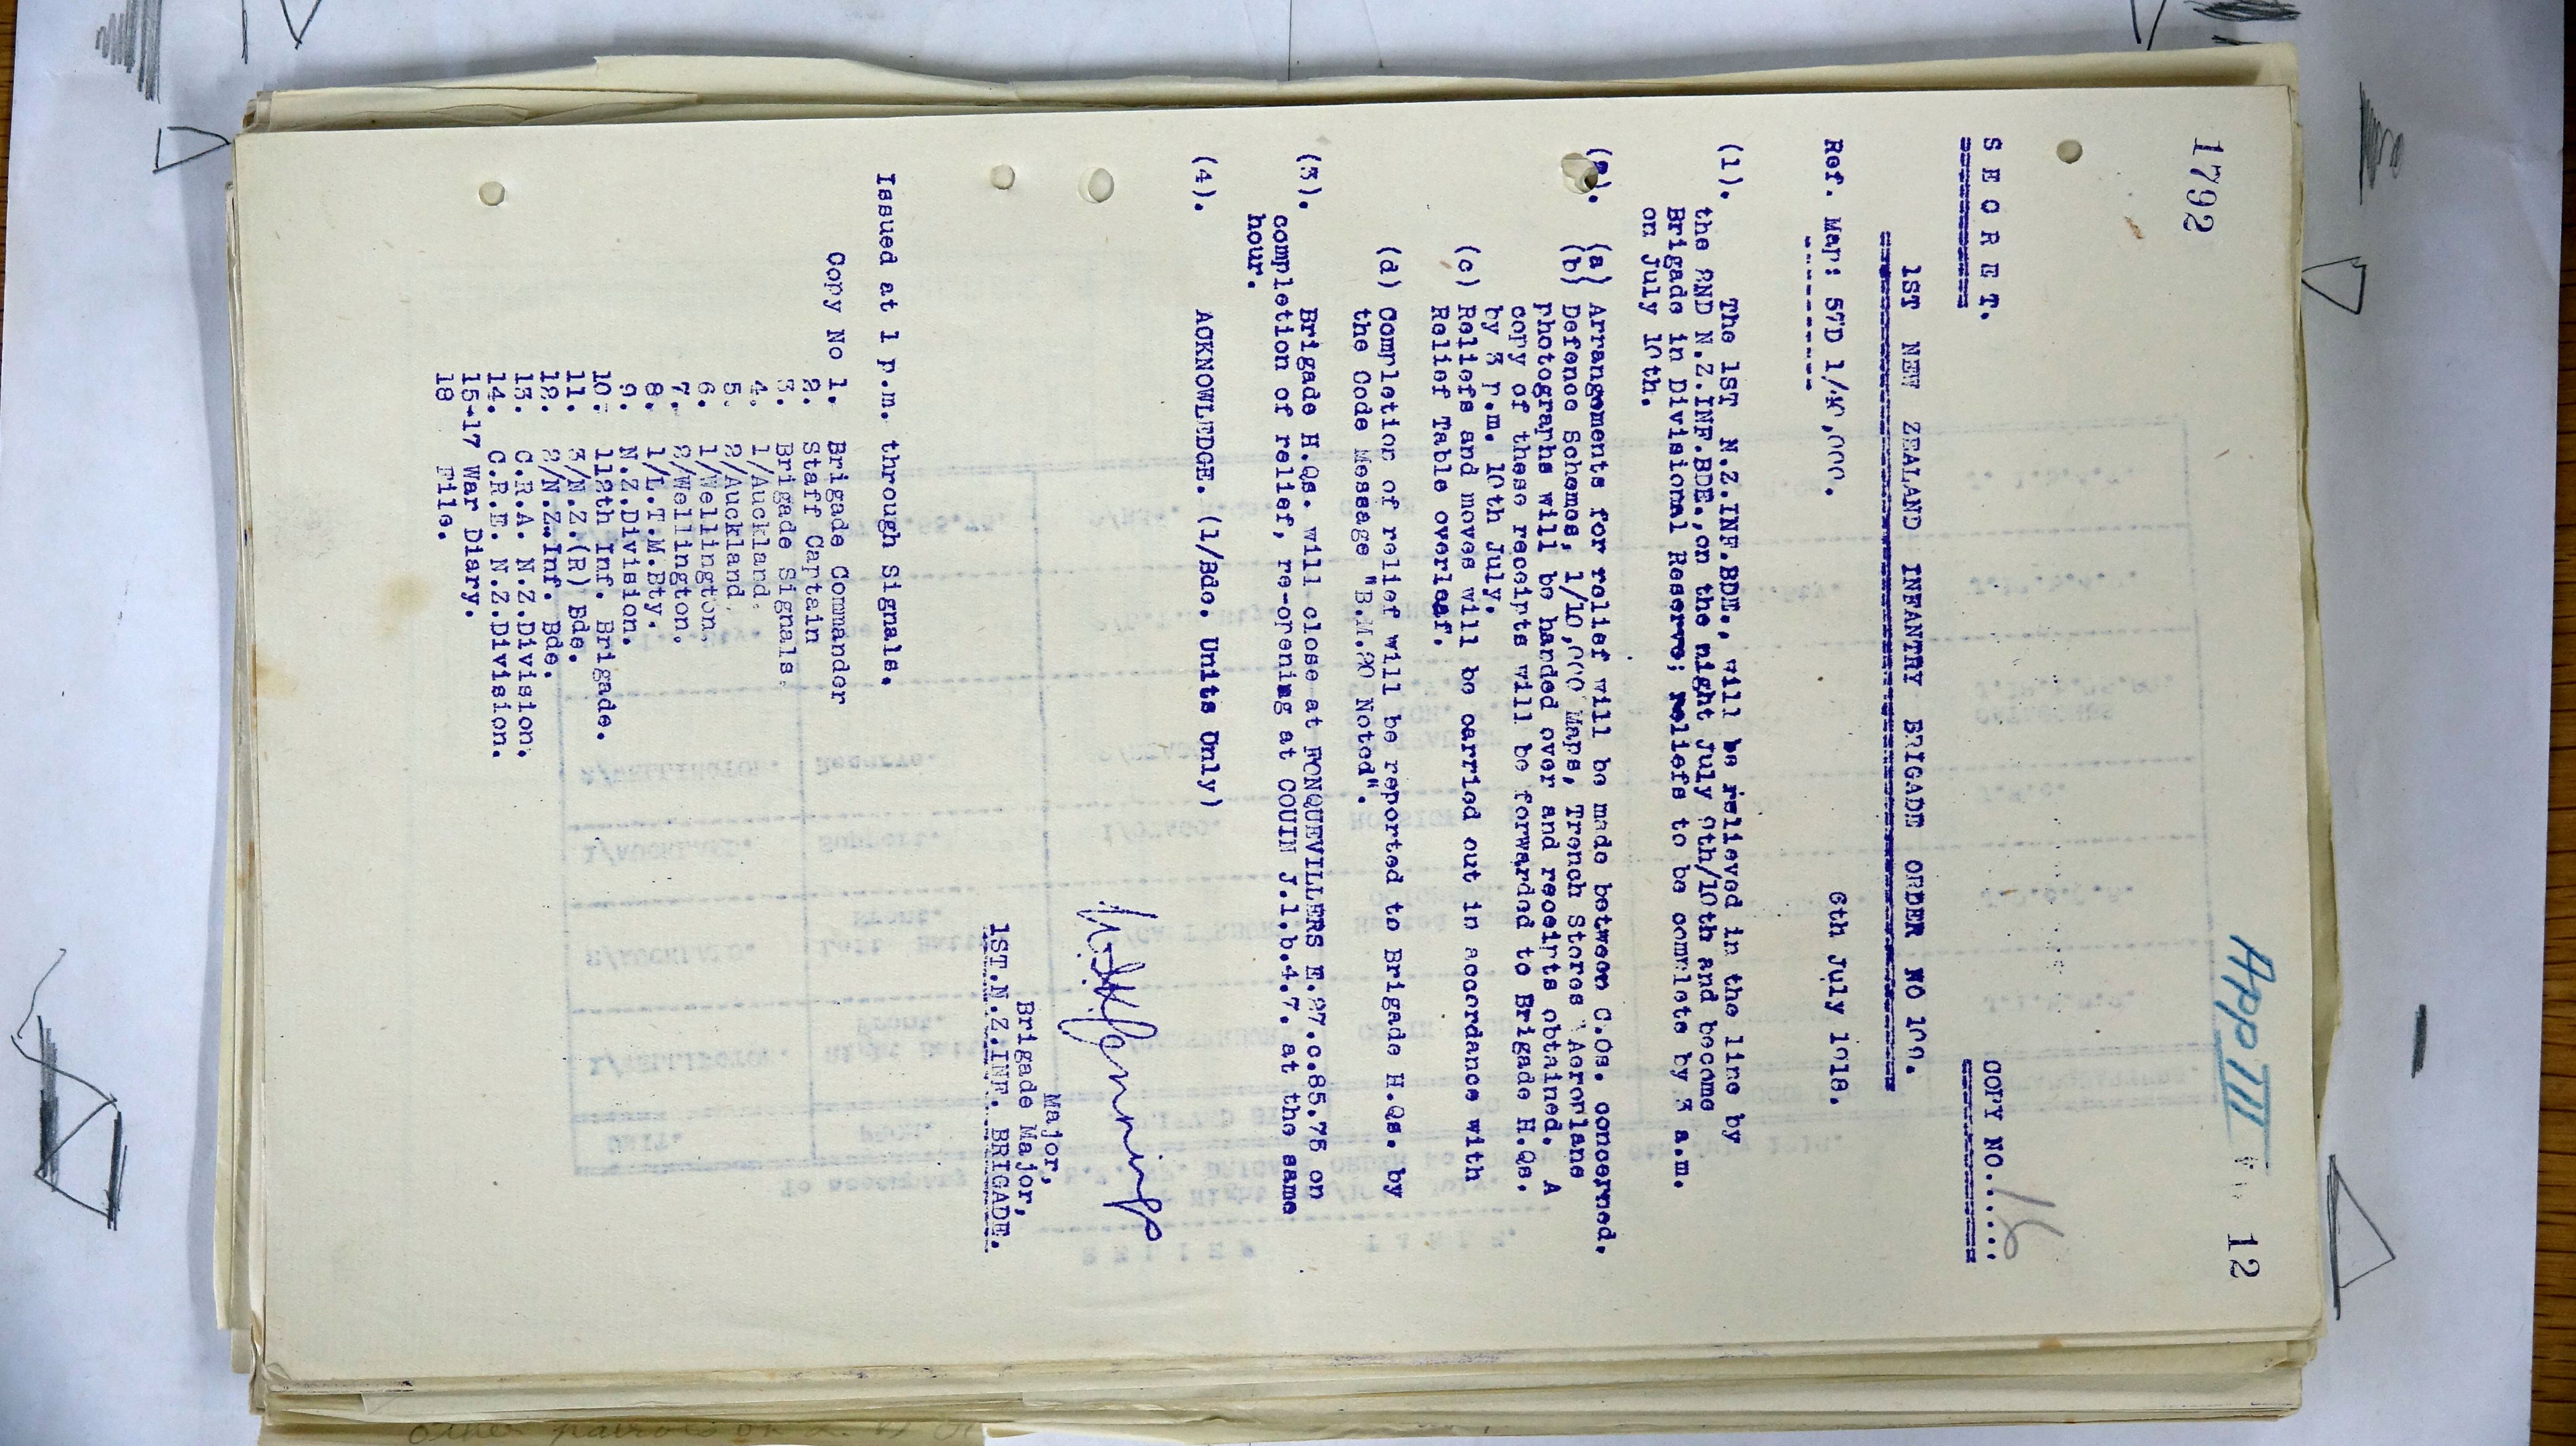 1792
App III
12
SECRET.
COPY NO....... 16
1ST NEW ZEALAND INFANTRY BRIGADE ORDER NO 100.
Ref. Map: 57D 1/40,000. 6th July 1918.
(1). The 1ST N.Z.INF.BDE., will be relieved in the line by
the 2ND N.Z.INF.BDE.,on the night July 9th/10th and become
Brigade in Divisional Reserve; reliefs to be complete by 3 a.m.
on July 10th.
(2). (a) Arrangements for relief will be made between C.Os. concerned.
(b) Defence Schemes, 1/10,000 Maps, Trench Stores, Aeroplane
photographs will be handed over and receipts obtained. A
copy of these receipts will be forwarded to Brigade H.Qs.
by 3 p.m. 10th July.
(c) Reliefs and moves will be carried out in accordance with
Relief Table overleaf.
(d) Completion of relief will be reported to Brigade H.Qs. by
the Code Message "B.M.20 Noted".
(3). Brigade H.Qs. will close at FONQUEVILLERS E.27.c.85.75 on
completion of relief, re-opening at COUIN J.1.b.4.7. at the same
hour.
(4). ACKNOWLEDGE. (1/Bde. Units Only)
Major,
Brigade Major,
1ST.N.Z.INF. BRIGADE.
Issued at 1 p.m. through Signals.
Copy No 1. Brigade Commander
2. Staff Captain
3. Brigade Signals.
4. 1/Auckland.
5. 2/Auckland.
6. 1/Wellington.
7. 2/Wellington.
8. 1/L.T.M.Bty.
9. N.Z.Division.
10. 112th Inf. Brigade.
11. 3/N.Z.(R) Bde.
12. 2/N.Z.Inf. Bde.
13. C.R.A. N.Z.Division.
14. C.R.E. N.Z.Division.
15-17 War Diary.
18 File.